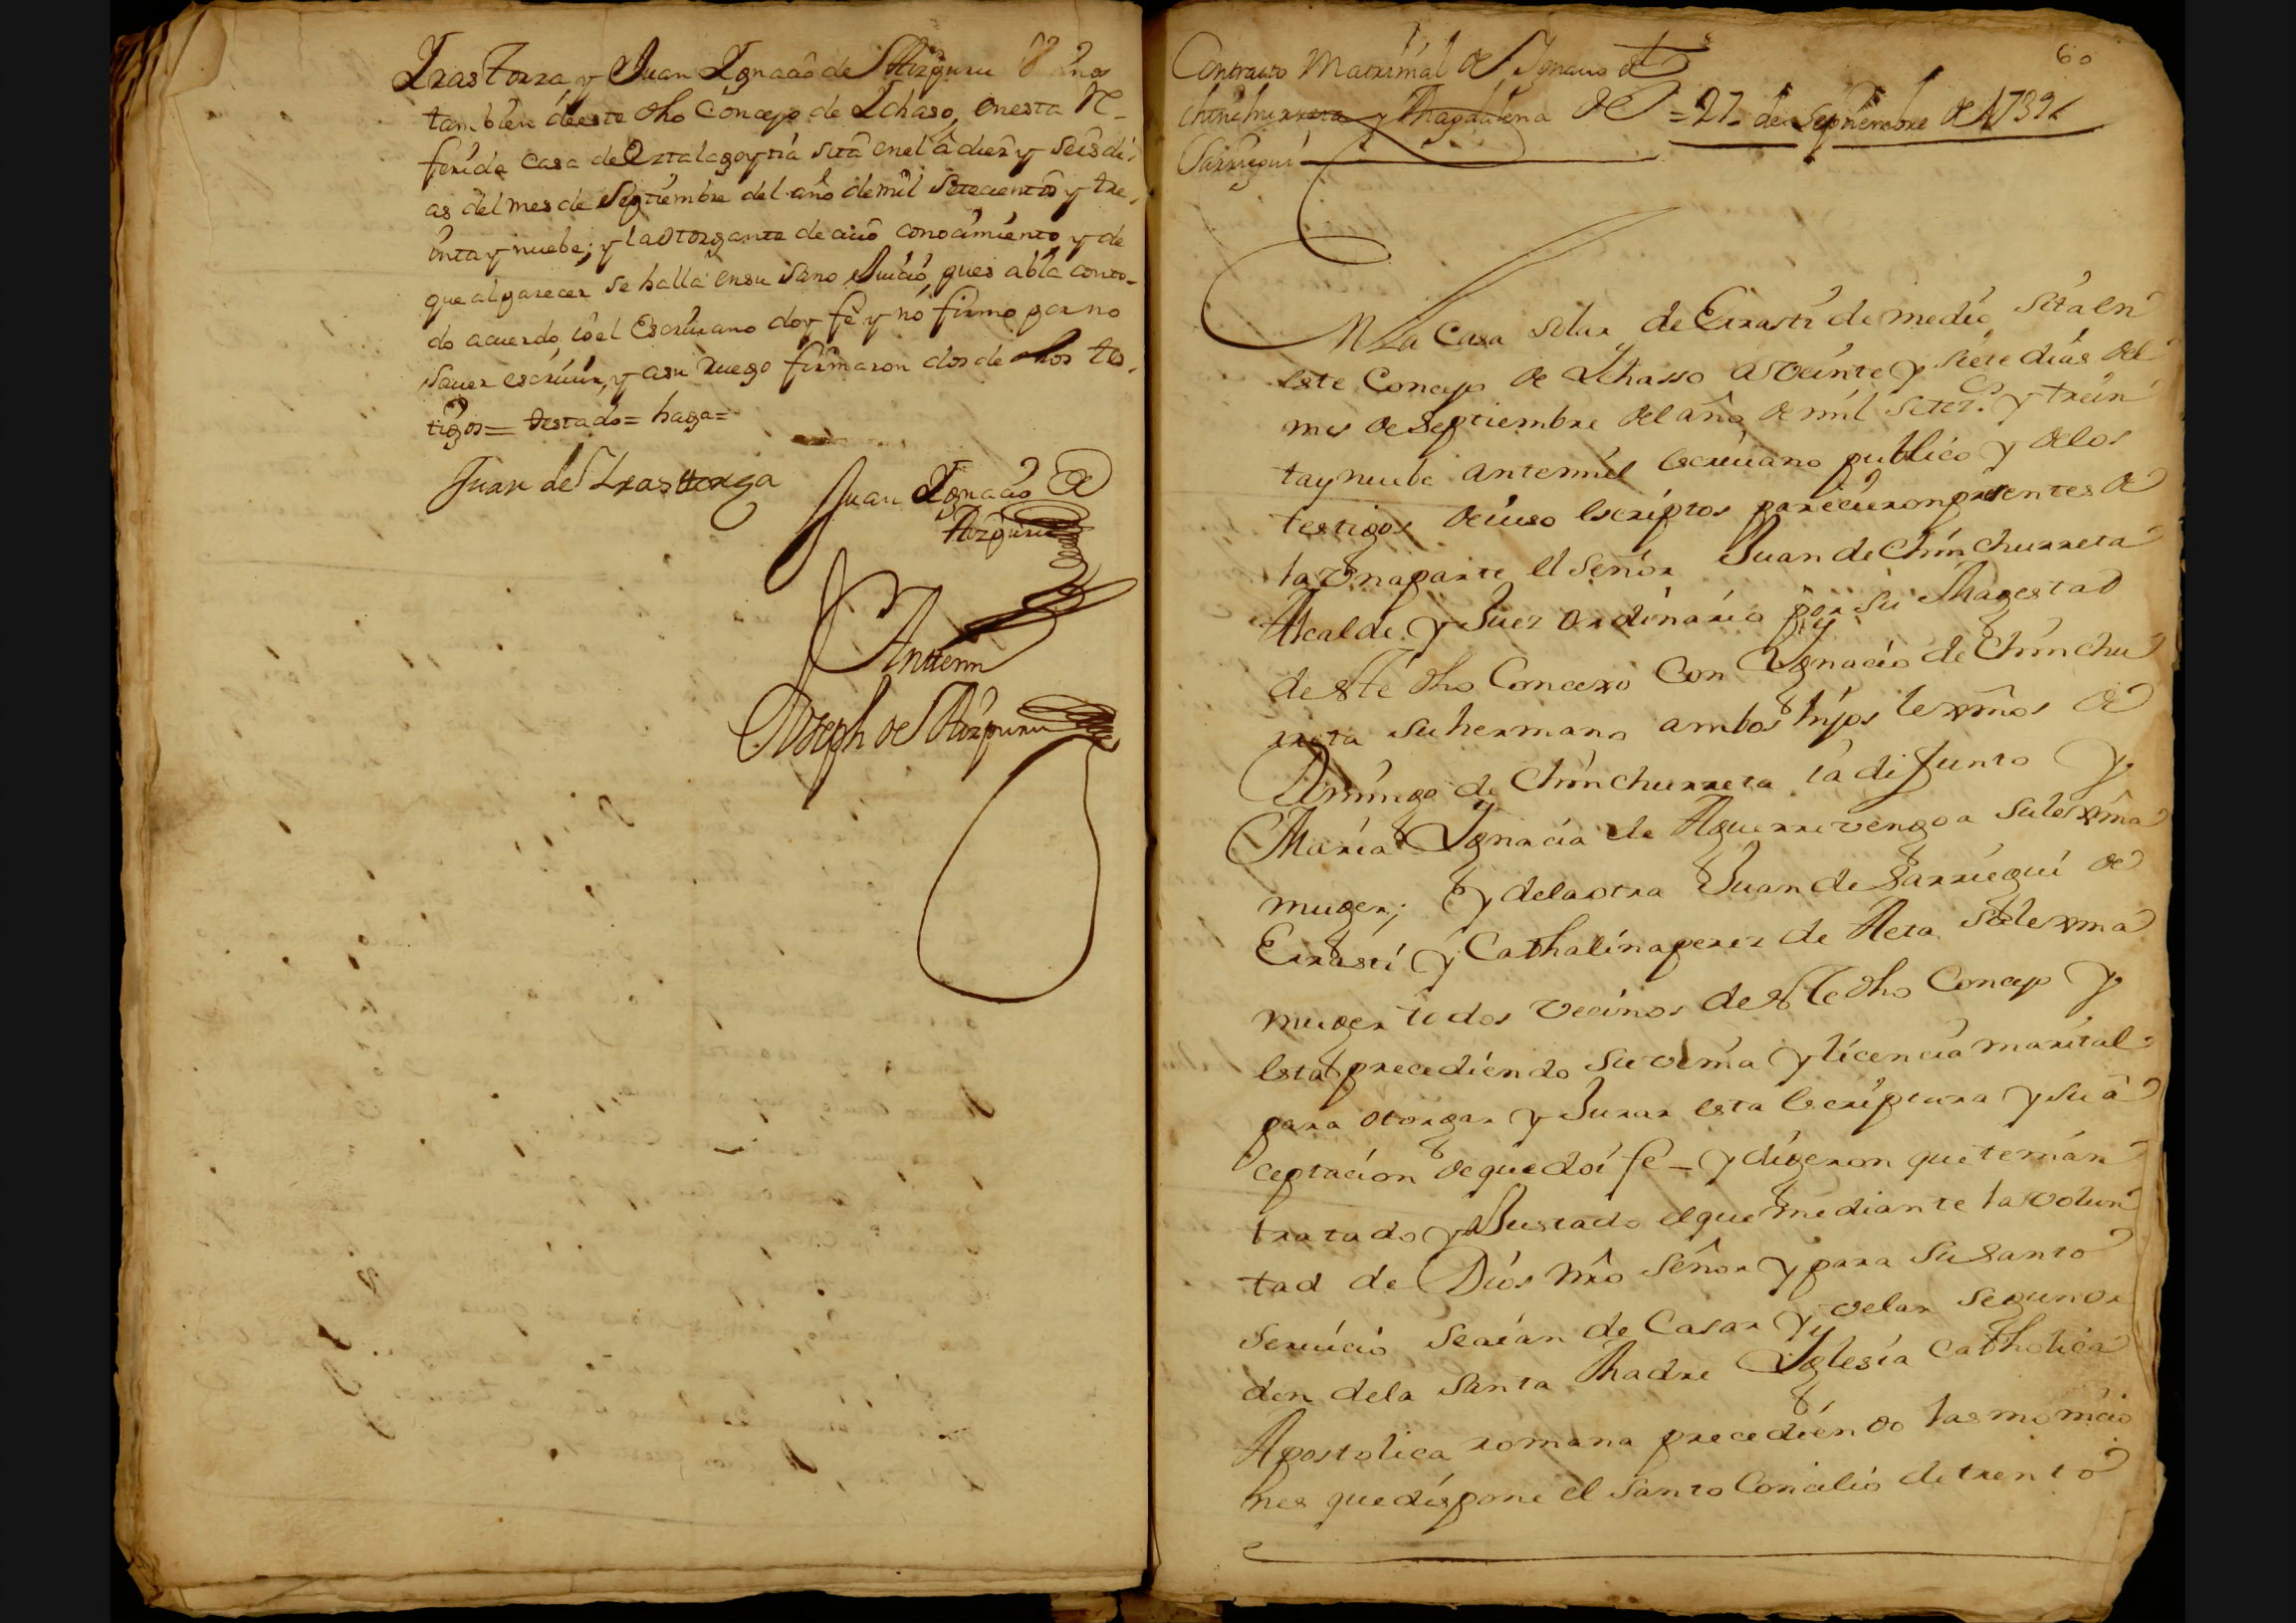 Yrastorza, y Juan Ygnacio de Aizpuru
tambien de este dho Concejo de Ychaso, en esta Re-
ferida casa de Oztalagoytia sita en el a diez y seis di-
as del mes de Septiembre del año de mil Setecientos y tre-
inta y nuebe; y la otorgante de cuio conocimiento y de
que al parecer se halla en su sano Juicio, pues abla con to-
do acuerdo io el Escriuano doy fe y no firmo por no
sauer escriuir, y a su ruego firmaron dos de dhos tes-
tigos = testado = haga =
Juan de Yrastorza
Juan Ygnacio de
Aizpuru
Anttemi
Joseph de Aizpuru
60
Contrauto Matrimal de Ygnacio de
Chinchurreta y Magdalena de = 27 de Septiembre de 1739
Sarriegui
En La Casa Solar de Errasti de medio, sita en
este Concejo de Ychasso a veinte y siete dias del
mes de Septiembre del año de mil setezs. y trein
ta y nuebe ante mi el escriuano publico y de los
testigos deiuso escriptos parecieron presentes de
la vna parte el señor Juan de Chinchurreta
Alcalde y Juez ordinario por su Magestad
de este dho Concexo con Ygnacio de Chinchu
rreta su hermano ambos hijos lexmos de
Domingo de Chinchurreta ia difunto y
Maria Ygnacia de Aguirrevengoa su lexma
muger; y de la otra Juan de Sarriegui de
Errasti y Cathalina perez de Aeta su lexma
muger todos vecinos de este dho Concejo y
esta precediendo su venia y licencia marital
para otorgar y Jurar esta escriptura y su a
ceptacion de que doi fe - y digeron que tenian
tratado y Justado el que mediante la volun
tad de Dios nro señor y para su santo
seruicio se aian de Casar y velar segun or
den de la Santa Madre Yglesia Catholica
Apostolica romana precediendo las monicio
nes que dispone el santo Concilio de trento